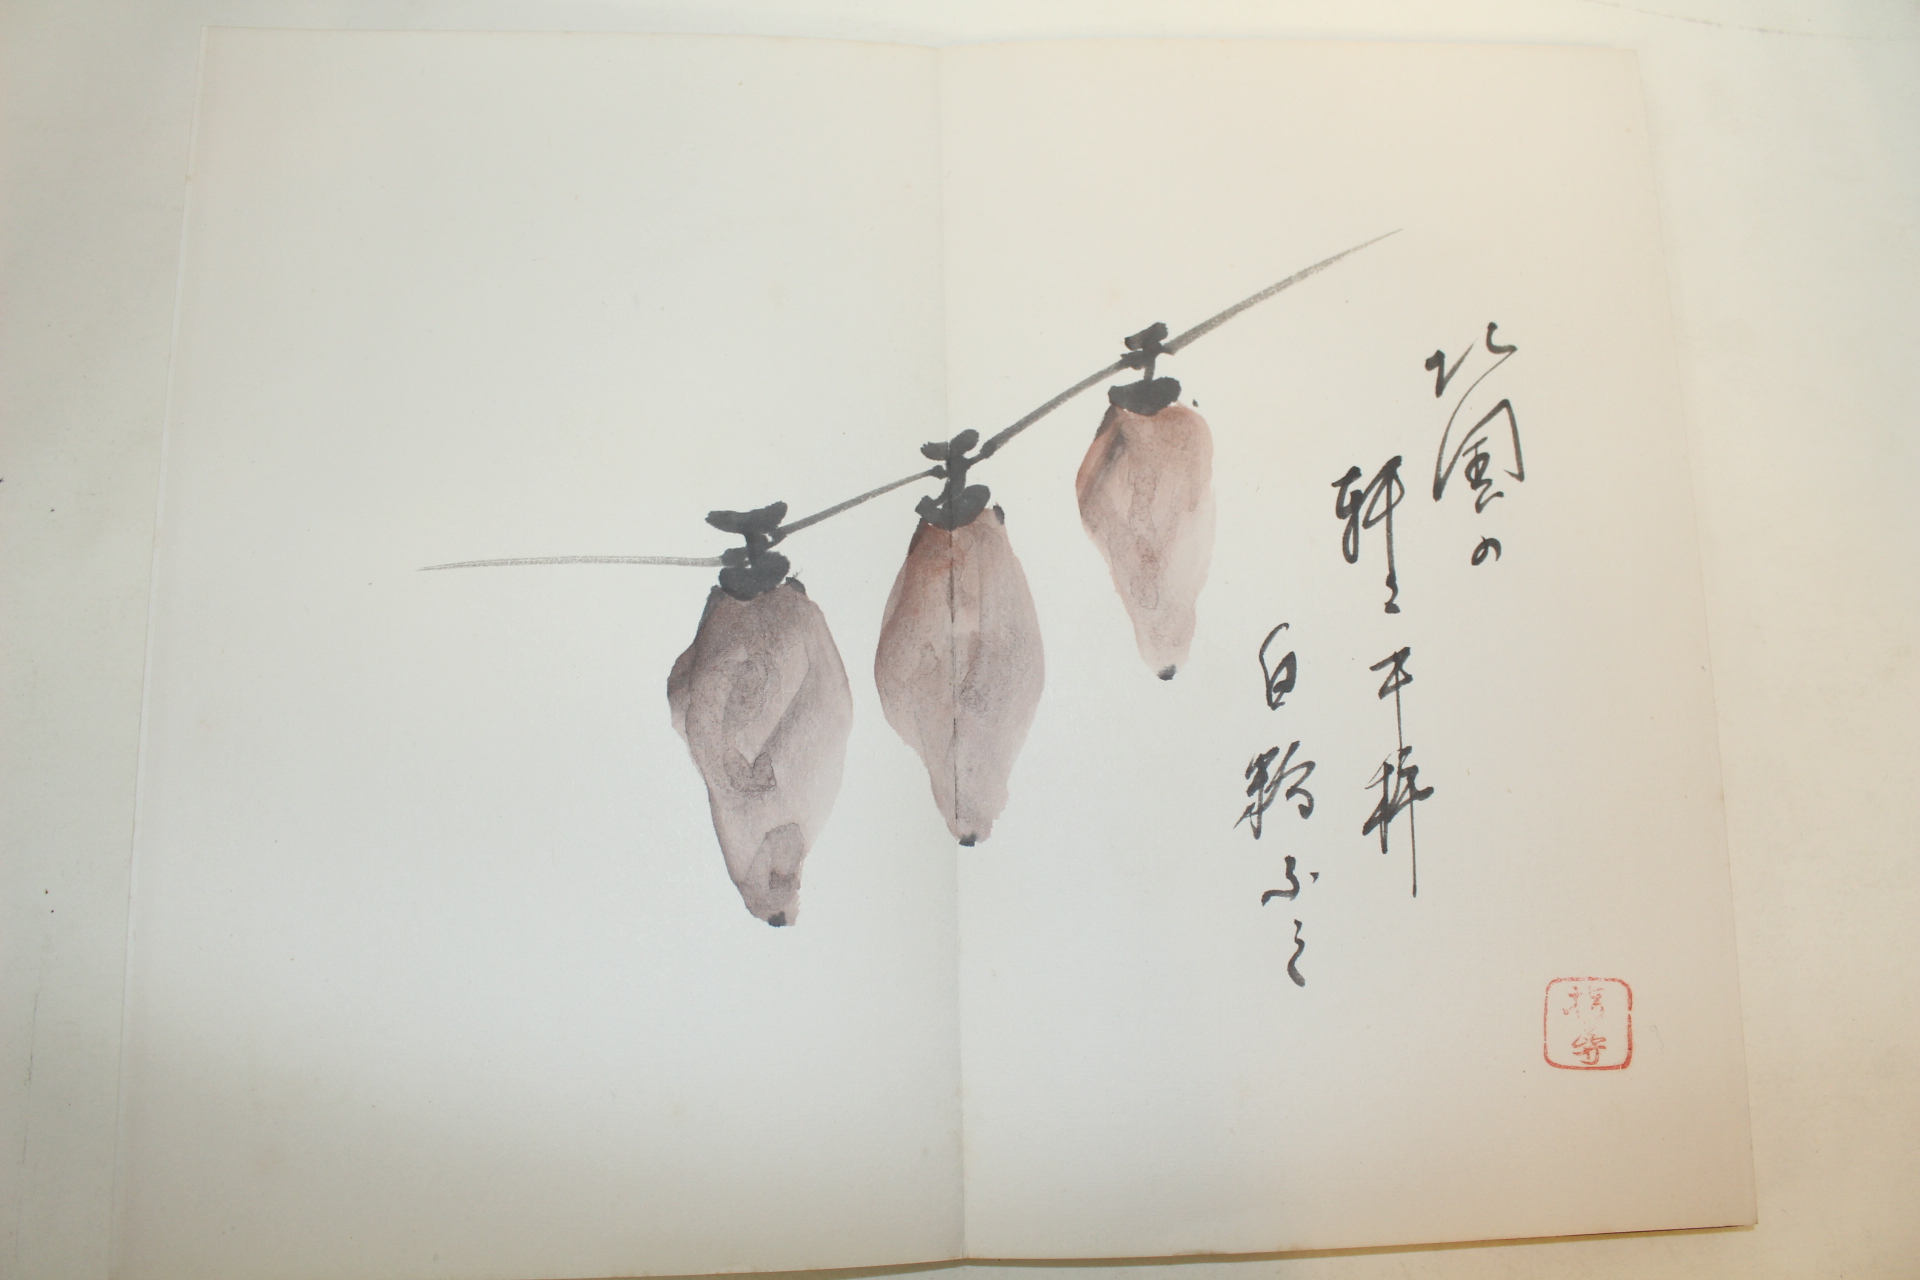 北国の
軒々干柿
白粉ふく